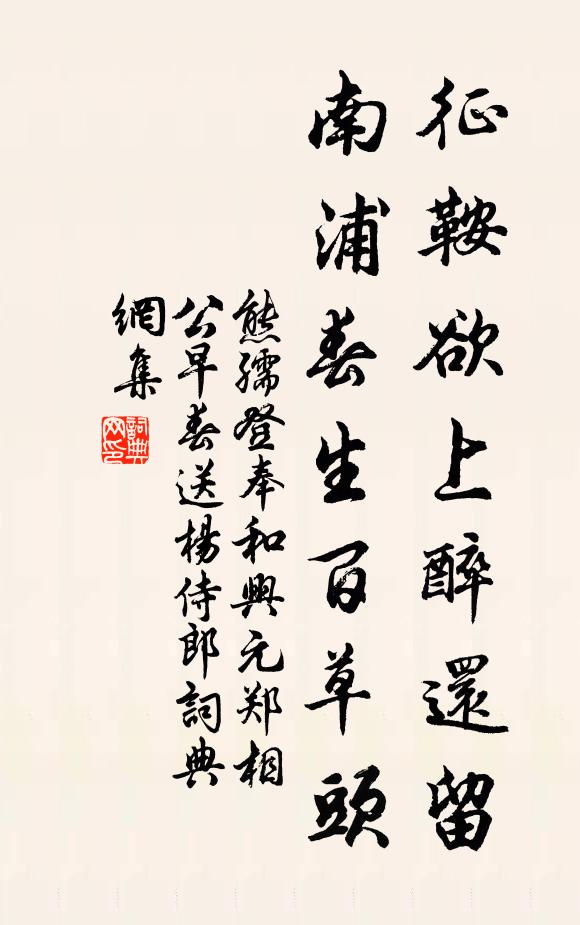 征鞍欲上醉還留
南浦春生百草頭
熊孺登奉和興元郑相
公早春送楊侍郎詞典
網集
詞典網印